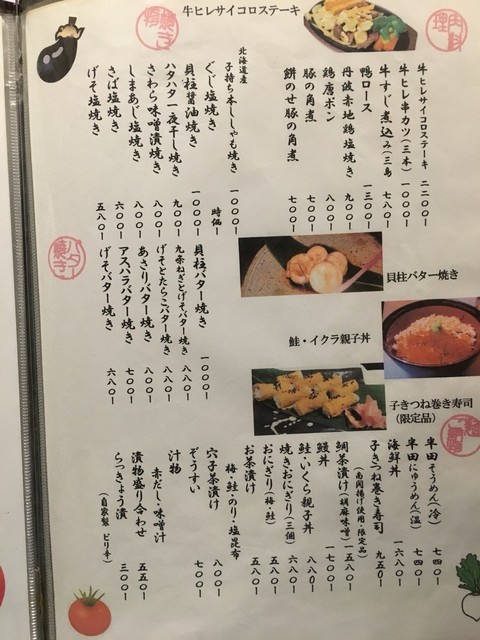 牛ヒレサイコロステーキ
肉料理
牛ヒレサイコロステーキ 二二〇〇ー
牛ヒレ串カツ(三本) 一〇〇〇ー
牛すじ煮込み(三島) 七八〇ー
鴨ロース 一三〇〇ー
丹波赤地鶏塩焼き 九〇〇ー
鶏唐ポン 八〇〇ー
豚の角煮 七〇〇ー
餅のせ豚の角煮 七〇〇ー
焼き物
北海道産
子持ち本ししゃも焼き 一〇〇〇ー
ぐじ塩焼き 時価
貝柱醤油焼き 一〇〇〇ー
ハタハタ一夜干し焼き 九〇〇ー
さわら味噌漬焼き 八〇〇ー
しまあじ塩焼き 八〇〇ー
さば塩焼き 六〇〇ー
げそ塩焼き 五八〇ー
バター焼き
貝柱バター焼き 一〇〇〇ー
九条ねぎとげそバター焼き 八八〇ー
げそとたらこバター焼き 八八〇ー
あさりバター焼き 八〇〇ー
アスパラバター焼き 七〇〇ー
げそバター焼き 六八〇ー
貝柱バター焼き
鮭・イクラ親子丼
子きつね巻き寿司
(限定品)
半田そうめん(冷) 七四〇ー
半田にゅうめん(温) 七四〇ー
海鮮丼 一六八〇ー
子きつね巻き寿司 九五〇ー
(南関揚げ使用・限定品)
鯛茶漬け(胡麻味噌) 一五八〇ー
鰻丼 一七〇〇ー
鮭・いくら親子丼 八八〇ー
焼きおにぎり(三個) 六八〇ー
おにぎり(梅・鮭) 五八〇ー
お茶漬け 五八〇ー
梅・鮭・のり・塩昆布
穴子茶漬け 八〇〇ー
ぞうすい 七〇〇ー
汁物
赤だし・味噌汁
漬物盛り合わせ 五五〇ー
らっきょう漬 三〇〇ー
(自家製 ピリ辛)